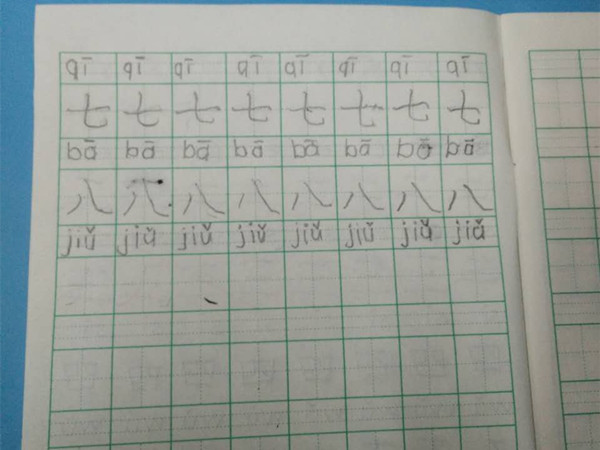 qī qī qī qī qī qī qī qī
七 七 七 七 七 七 七 七
bā bā bā bā bā bā bā bā
八 八 八 八 八 八 八 八
jiǔ jiǔ jiǔ jiǔ jiǔ jiǔ jiǔ jiǔ